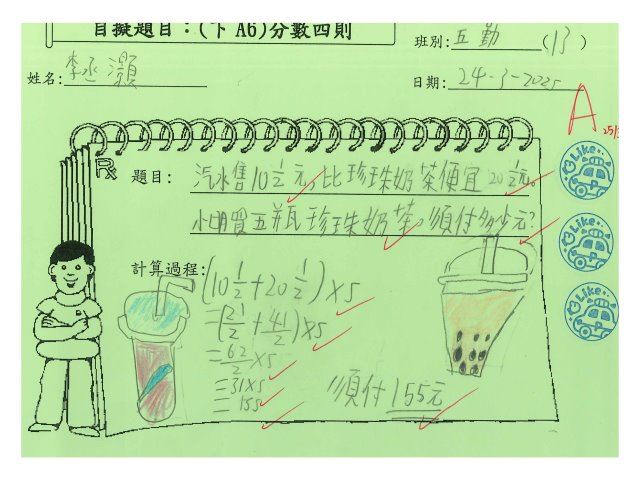 自擬題目：(下 A6)分數四則
班別: 五勤 (13)
姓名: 李丞灝
日期: 24-3-2025
A
25/3
題目: 汽水售10 1/2 元，比珍珠奶茶便宜 20 1/2元。
小明買五瓶珍珠奶茶。須付多少元?
計算過程:
(10 1/2 + 20 1/2) × 5
= (21/2 + 41/2) × 5
= 62/2 × 5
= 31 × 5
= 155
須付 155元
Like
Like
Like